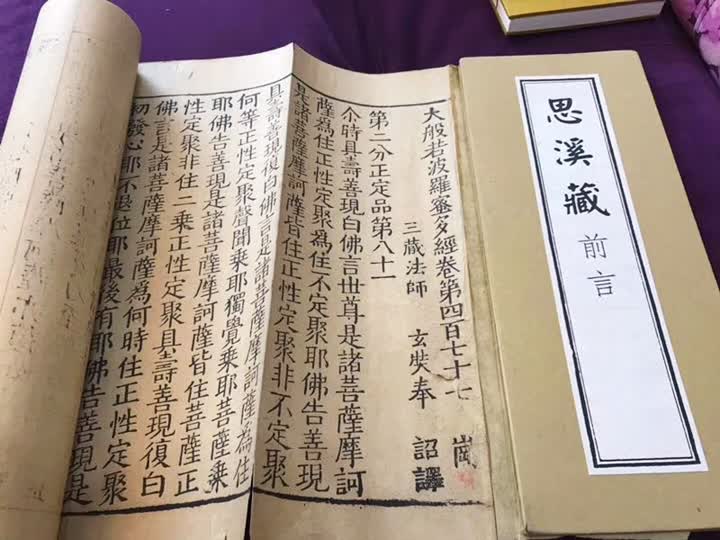 思溪藏
前言
大般若波羅蜜多經卷第四百七十七 崗
三藏法師 玄奘奉 詔譯
第二分正定品第八十一
尒時具壽善現白佛言世尊是諸菩薩摩訶
薩為住正性定聚為住不定聚耶佛告善現
是諸菩薩摩訶薩皆住正性定聚非不定聚
具壽善現復白佛言是諸菩薩摩訶薩為住
何等正性定聚聲聞乘耶獨覺乘耶菩薩乘
耶佛告善現是諸菩薩摩訶薩皆住菩薩正
性定聚非住二乘正性定聚具壽善現復白
佛言是諸菩薩摩訶薩為何時住正性定聚
初發心耶不退位耶最後有耶佛告善現是